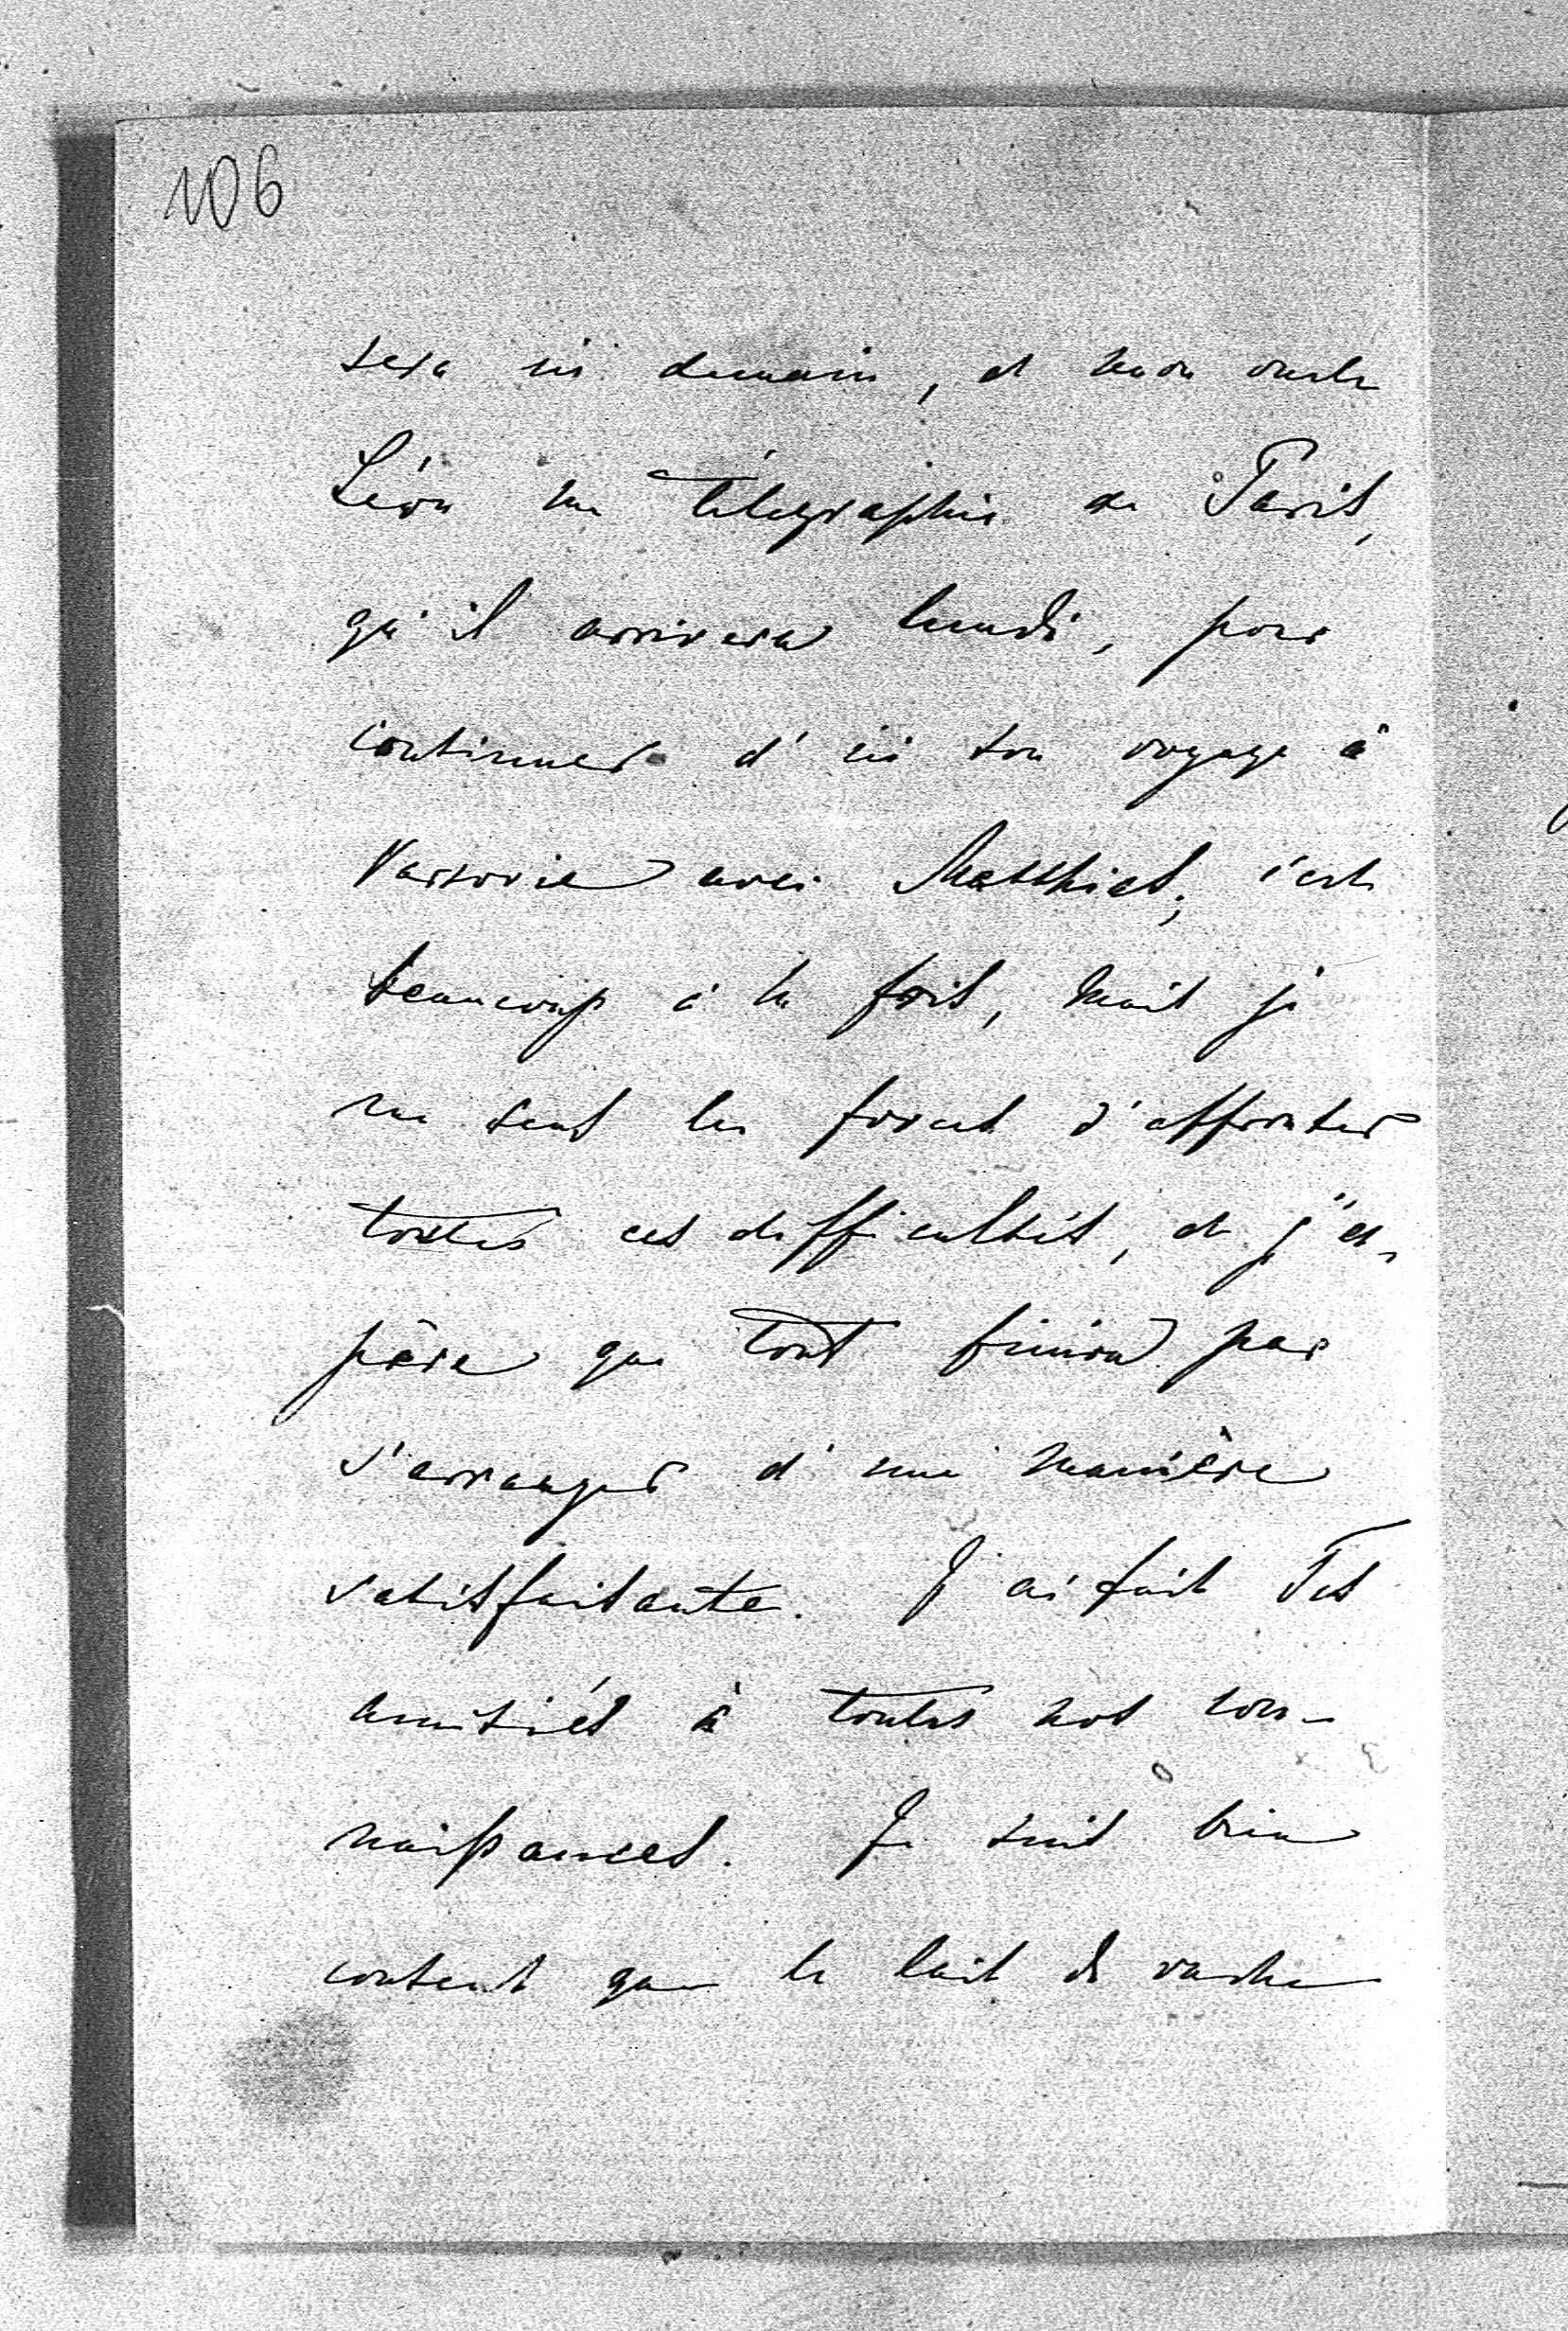 106
sera ici demain, et mon oncle
Léon me télégraphie de Paris,
qu'il arrivera lundi, pour
continuer d'ici son voyage à
Varsovie avec Matthias; c'est
beaucoup à la fois, mais je
me sens les forces d'affronter
toutes ces difficultés, et j'es-
père que tout finira par
s'arranger d'une manière
satisfaisante. J'ai fait Tes
amitiés à toutes nos con-
naissances. Je suis bien
content que le lait de vache